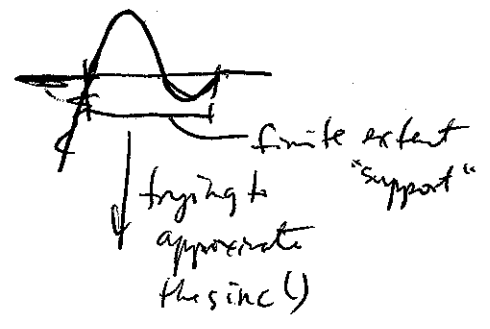 finite extent
"support"
trying to
approximate
the sinc ()